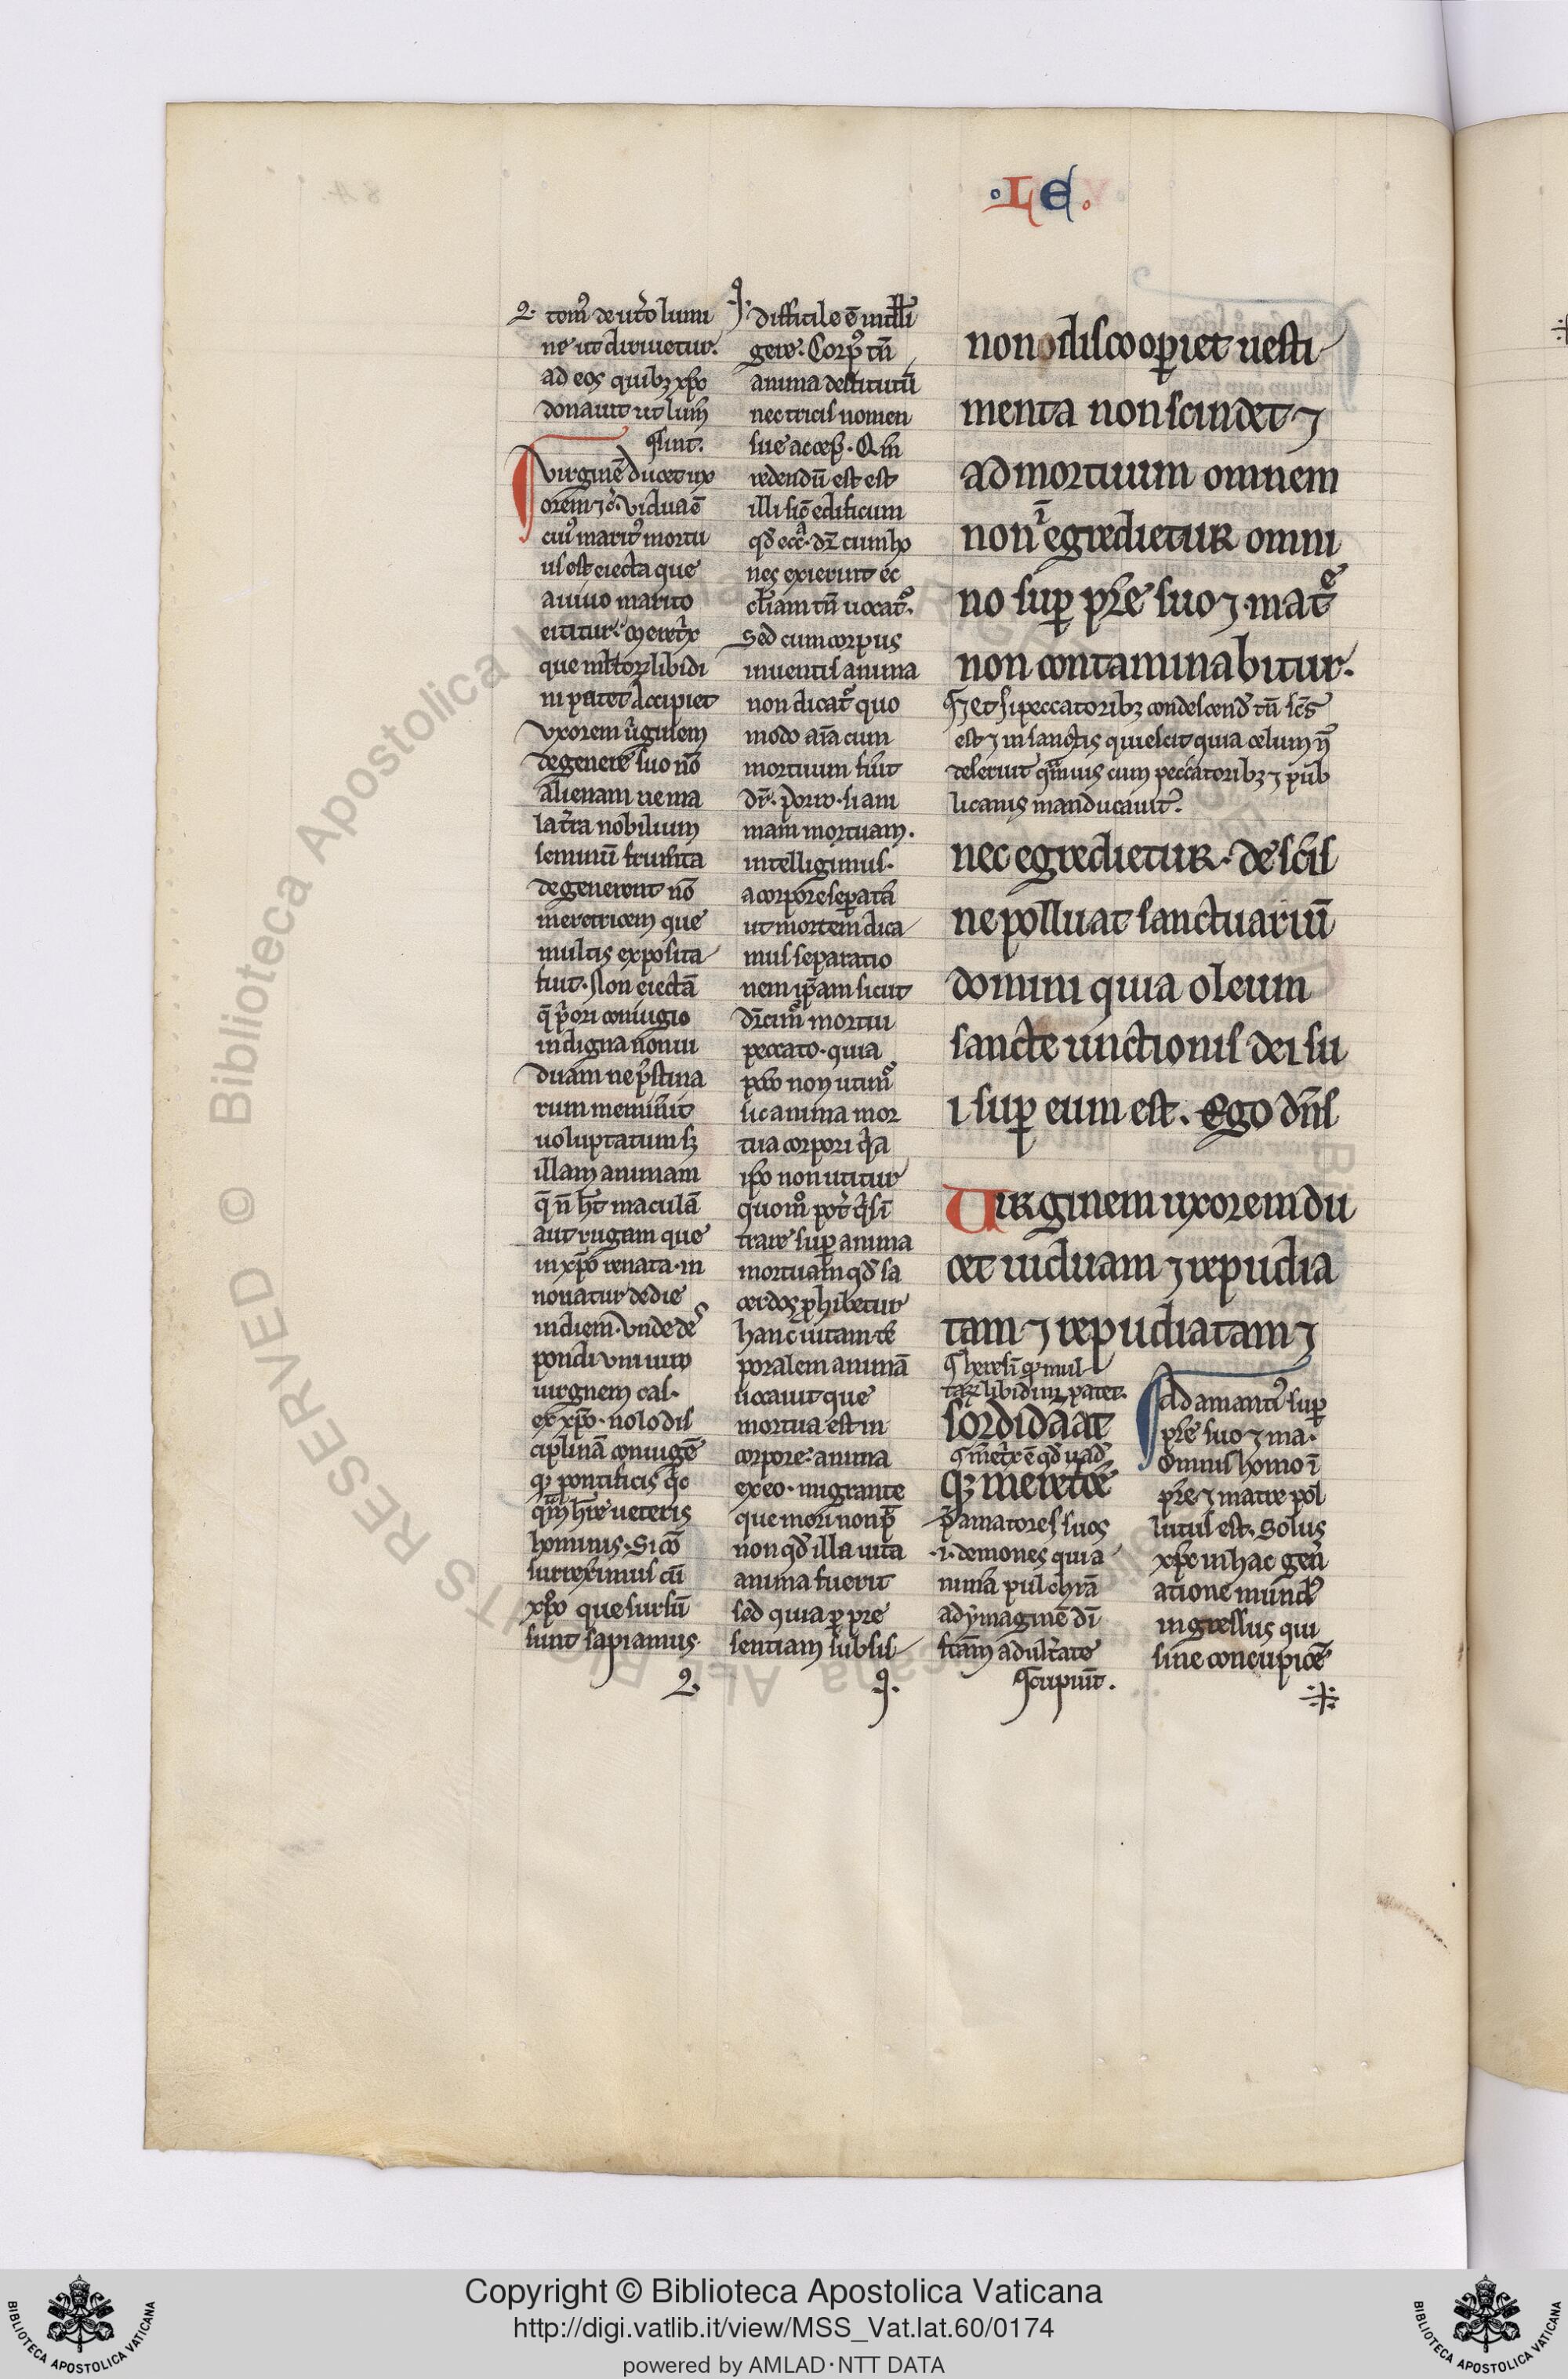 ·LE.
2. tom᷒ de uero lumi
ne ut diriuetur.
ad eos quibꝫ xp̄o
donauit ut lum̄
sint.
virginē ducet ux
orem ⁊c̄. Vidua ē
cui᷒ marit᷒ mortu
us est eiecta que
a uiuo marito
eicitur. Meret̾x
que ml̄toꝝ libidi
ni patet. Accipiet
vxorem u̾ginem
de genere suo nō
alienam ne ma
la t̾ra nobilium
seminū frum̄ta
degenerent nō
meretricem que
multis exposita
fuit. Non eiectā
q̄ p̾ori coniugio
indigna non ui
duam ne p̾stina
rum memin̾it
uoluptatum sꝫ
illam animam
q̄ n̄ h̄t maculā
aut rugam que
in xp̄o renata. in
nouatur de die
in diem. Vnde des
pondi vni uiro
uirginem cas.
ex xp̄o. nolo dis
ciplinā coniugē
qꝫ pontificis q̾c
q̄m h̄re ueteris
hominis. Si cō
surreximus cū
xp̄o que sursū
sunt sapiamus.
2.
9. difficile ē intelli
gere. Corp᷒ tn̄
anima destitutū
nec tricis nomen
sue accep̄. Qm̄
redendū est est
illi sic̄ edificum
qd̄ ecc̄a. dr̄ cum ho
nes exierint ec
cl̄iam tn̄ uocat᷑.
Sed cum corpus
inuentis anima
non dicat᷑ quo
modo aīa cum
mortuum fuit
dr̄. porro. si am
mam mortuam.
intelligimus.
a corpore sepatā
ut mortem dica
mus separatio
nem ip̄am sicut
dicim᷒ mortui
peccato. quia
peccō non utim᷑
sic anima mor
tua corpori q̾a
ip̄o non utitur
quom̊ pot̾ q̾s ī
trare suꝑ anima
mortuam qd̄ sa
cerdos ꝓhibetur
hanc uitam tē
poralem animā
uocauit que
mortua est in
corpore. anima
ex eo. migrante
que mori non p̄
non qd̄ illa uita
anima fuerit
sed quia ꝑ pre
sentiam subsis
9.
non discooperiet uesti
menta non scindet ⁊
ad mortuum omnem
non īegredietur omni
no suꝑ pr̄e suo ⁊ matre
non contaminabitur.
⁊ et si peccatoribꝫ condescend̾ tn̄ sc̄s
est ⁊ in sanctis quiescit quia celum n̄
deseruit q̄muis cum peccatoribꝫ ⁊ pub
licanis manducauit.
nec egredietur. de sc̄is
ne polluat sanctuariū
domini quia oleum
sancte unctionis dei su
i suꝑ eum est. Ego dn̄s
Virginem uxorem du
cet uiduam ⁊ repudia
tam ⁊ repudiatam ⁊
heresī qꝫ mul
taꝝ libidinꝫ patet.
sordidā at
qꝫ meretcē
p̄ amatores suos
.i. demones quia
nimā pulchrā
ad ymaginē dī
fc̄am adult̾ate
cupiūt.
ad amanti᷒ suꝑ
pr̄e suo ⁊ ma.
Omnis homo ī
pr̄e ⁊ matre pol
lutus est. Solus
xp̄c in hac gen̾
atione mund᷒
ingressus qui
sine concupisc̄e
Copyright © Biblioteca Apostolica Vaticana
http://digi.vatlib.it/view/MSS_Vat.lat.60/0174
powered by AMLAD·NTT DATA
BIBLIOTECA APOSTOLICA VATICANA
BIBLIOTECA APOSTOLICA VATICANA